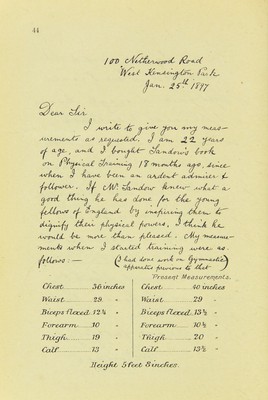 44
100 Netherwood Road
West Kensington Park
Jan. 25th 1897
Dear Sir
I write to give you my meas-
urements as requested. I am 22 years
of age, and I bought Sandow's book
on Physical Training 18 months ago, since
when I have been an ardent admirer &
follower. If Mr. Sandow knew what a
good thing he has done for the young
fellows of England by inspiring them to
dignify their physical powers, I think he
would be more than pleased. My measure-
ments when I started training were as
follows :— (I had done work on Gymnastic
apparatus previous to that)
Present Measurements.
Chest 36 inches Chest 40 inches
Waist 29 " Waist 29 "
Biceps flexed 12¼ " Biceps flexed 15½ "
Forearm 10 " Forearm 10½ "
Thigh 19 " Thigh 20 "
Calf 13 " Calf 13½ "
Height 5 feet 8 inches.